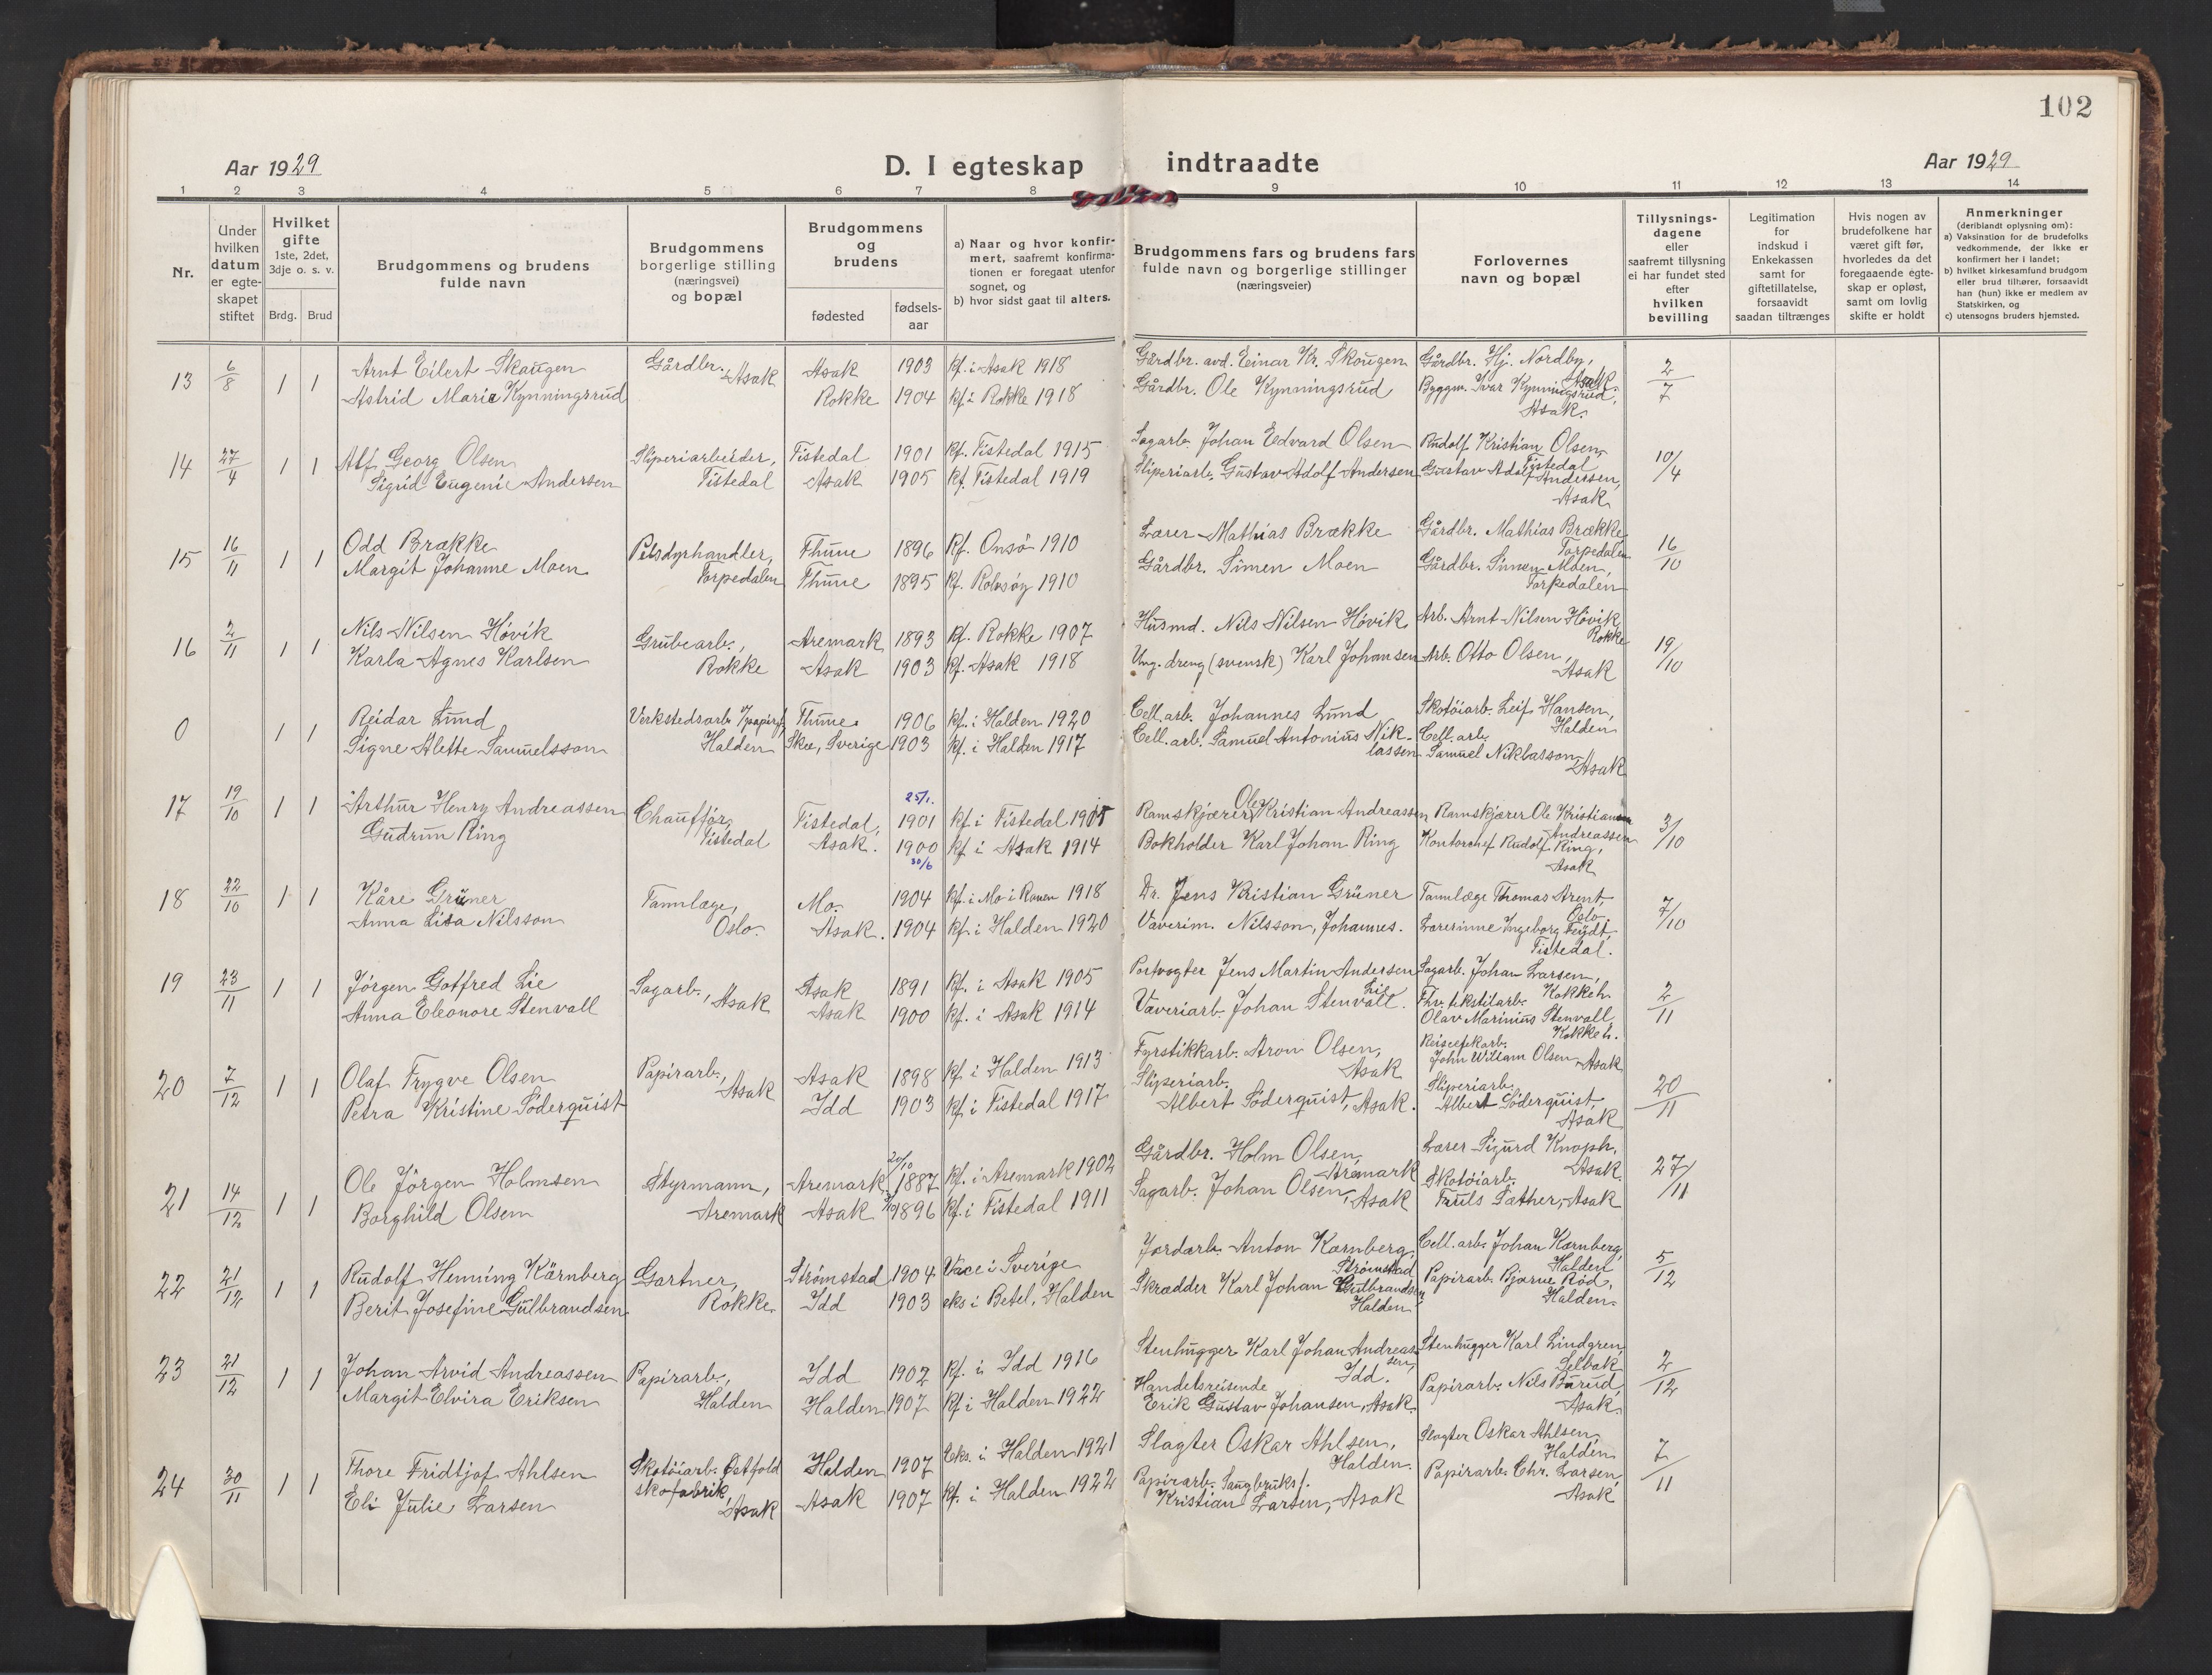 102
Aar 1929
D. I egteskap indtraadte
Aar 1929
1 2 3 4 5 6 7 8 9 10 11 12 13 14
Nr.
Under
hvilken
datum
er egte-
skapet
stiftet
Hvilket
gifte
1ste, 2det,
3dje o. s. v.
Brdg. Brud
Brudgommens og brudens
fulde navn
Brudgommens
borgerlige stilling
(næringsvei)
og bopæl
Brudgommens
og
brudens
fødested
fødsels-
aar
a) Naar og hvor konfir-
mert, saafremt konfirma-
tionen er foregaat utenfor
sognet, og
b) hvor sidst gaat til alters.
Brudgommens fars og brudens fars
fulde navn og borgerlige stillinger
(næringsveier)
Forlovernes
navn og bopæl
Tillysnings-
dagene
eller
saafremt tillysning
ei har fundet sted
efter
hvilken
bevilling
Legitimation
for
indskud i
Enkekassen
samt for
giftetillatelse,
forsaavidt
saadan tiltrænges
Hvis nogen av
brudefolkene har
været gift før,
hvorledes da det
foregaaende egte-
skap er opløst,
samt om lovlig
skifte er holdt
Anmerkninger
(deriblandt oplysning om):
a) Vaksination for de brudefolks
vedkommende, der ikke er
konfirmert her i landet;
b) hvilket kirkesamfund brudgom
eller brud tilhører, forsaavidt
han (hun) ikke er medlem av
Statskirken, og
c) utensogns bruders hjemsted.
13 6/8 1 1
Arnt Eilert Skaugen
Astrid Marie Kynningsrud
Gårdbr.
Asak
Asak 1903 kf. i Asak 1918
Rokke 1904 kf. i Rokke 1918
Gårdbr. avd. Einar Kr. Skougen
Gårdbr. Ole Kynningsrud
Gårdbr. Hj. Nordby,
Asak.
Byggm. Ivar Kynningsrud,
Asak.
2/7
14 27/4 1 1
Alf Georg Olsen
Sigrid Eugenie Andersen
Sliperiarbeider,
Tistedal
Tistedal 1901 kf. Tistedal 1915
Asak 1905 kf. Tistedal 1919
Sagarb. Johan Edvard Olsen
Sliperiarb. Gustav Adolf Andersen
Rudolf Kristian Olsen,
Tistedal
Gustav Adolf Andersen,
Asak
10/4
15 16/11 1 1
Odd Brække
Margit Johanne Moen
Pelsdyrhandler,
Torpedalen
Thune 1896 Kf. Onsø 1910
Thune 1895 kf. Rolvsøy 1910
Lærer Mathias Brække
Gårdbr. Simen Moen
Gårdbr. Mathias Brække
Torpedalen
Gårdbr. Simen Moen,
Torpedalen
16/10
16 2/11 1 1
Nils Nilsen Høvik
Karla Agnes Karlsen
Grubearb.,
Rokke
Aremark 1893 kf. Rokke 1907
Asak 1903 kf. Asak 1918
Husmd. Nils Nilsen Høvik
Ung. dreng (svensk) Karl Johansen
Arb. Arnt Nilsen Høvik
Rokke
Arb. Otto Olsen,
Asak
19/10
0 1 1
Reidar Lund
Signe Alette Samuelsson
Verkstedsarb.
Halden
Thune 1906 kf. i Halden 1920
Skee, Sverige 1903 kf. i Halden 1917
Cell. arb. Johannes Lund
Cell. arb. Samuel Antonius Nik-
lassen
Skotøiarb. Leif Hansen,
Halden
Cell. arb.
Samuel Niklasson,
Asak
17 19/10 1 1
Arthur Henry Andreassen
Gudrun Ring
Chauffør,
Tistedal
25/1.
Tistedal, 1901 kf. i Tistedal 1915
Asak. 1900 kf. i Asak 1914
30/6
Ramskjærer Ole Kristian Andreassen
Bokholder Karl Johan Ring
Ramskjærer Ole Kristian
Andreassen
Kontorchef Rudolf Ring,
Asak
3/10
18 22/10 1 1
Kåre Grüner
Anna Lisa Nilsson
Tannlæge,
Oslo.
Mo. 1904 kf. i Mo i Ranen 1918
Asak. 1904 kf. i Halden 1920
Dr. Jens Kristian Grüner
Væverim. Nilsson, Johannes.
Tannlæge Thomas Arent,
Oslo.
Lærerinne Ingeborg Feydt,
Tistedal.
7/10
19 23/11 1 1
Jørgen Gotfred Lie
Anna Eleonore Stenvall
Sagarb., Asak
Asak 1891 Kf. i Asak 1905
Asak 1900 kf. i Asak 1914
Portvogter Jens Martin Andersen
Lie
Væveriarb. Johan Stenvall.
Sagarb. Johan Larsen,
Kokkeh.
Fhv. tekstilarb.
Olav Marinius Stenvall
Kokkeh.
2/11
20 7/12 1 1
Olaf Trygve Olsen
Petra Kristine Söderquist
Papirarb.,
Asak
Asak 1898 kf. i Halden 1913
Idd 1903 kf. i Tistedal 1917
Fyrstikkarb. Aron Olsen,
Asak
Sliperiarb.
Albert Söderquist, Asak.
John William Olsen, Asak
Sliperiarb.
Albert Söderquist,
Asak
20/11
21 14/12 1 1
Ole Jörgen Holmsen
Borghild Olsen
Styrmann,
Aremark
20/10
Aremark 1887 kf. i Aremark 1902
Asak 1896 kf. i Tistedal 1911
Gårdbr. Holm Olsen,
Aremark
Sagarb. Johan Olsen,
Asak
Lærer Sigurd Knoph,
Asak
Skotøiarb.
Truls Sæther, Asak
27/11
22 21/12 1 1
Rudolf Henning Kärnberg
Berit Josefine Gulbrandsen
Gartner,
Rokke
Strömstad 1904 Vacc i Sverige
Idd 1903 eks i Betel, Halden
Jordarb. Anton Kærnberg,
Strömstad
Skrædder Karl Johan Gulbrandsen
Halden
Cell. arb. Johan Kærnberg,
Halden
Papirarb. Bjarne Röd,
Halden.
5/12
23 21/12 1 1
Johan Arvid Andreassen
Margit Elvira Eriksen
Papirarb.,
Halden
Idd 1902 kf. i Idd 1916
Halden 1907 kf i Halden 1922
Stenhugger Karl Johan Andreas-
sen,
Idd.
Handelsreisende
Erik Gustav Johansen, Asak.
Stenhugger Karl Lindgren,
Selbak
Papirarb. Nils Burud,
Asak.
2/12
24 30/11 1 1
Thore Fridtjof Ahlsen
Eli Julie Larsen
Skotöiarb. Östfold
skofabrik,
Asak
Halden 1907 eks. i Halden 1921
Asak 1907 kf. i Halden 1922
Slagter Oskar Ahlsen,
Halden.
Papirarb. Saugbruksf.
Kristian Larsen, Asak
Slagter Oskar Ahlsen,
Halden
Papirarb. Chr. Larsen,
Asak
7/11